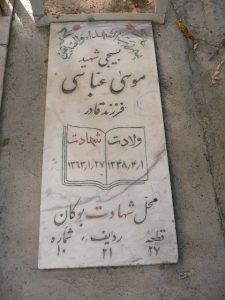 بسیجی شهید
موسی عباسی
فرزند قادر
ولادت شهادت
۱۳۴۸/۴/۱ ۱۳۶۳/۱/۲۷
محل شهادت بوکان
قطعه ردیف شماره
۲۷ ۲۱ ۱۰